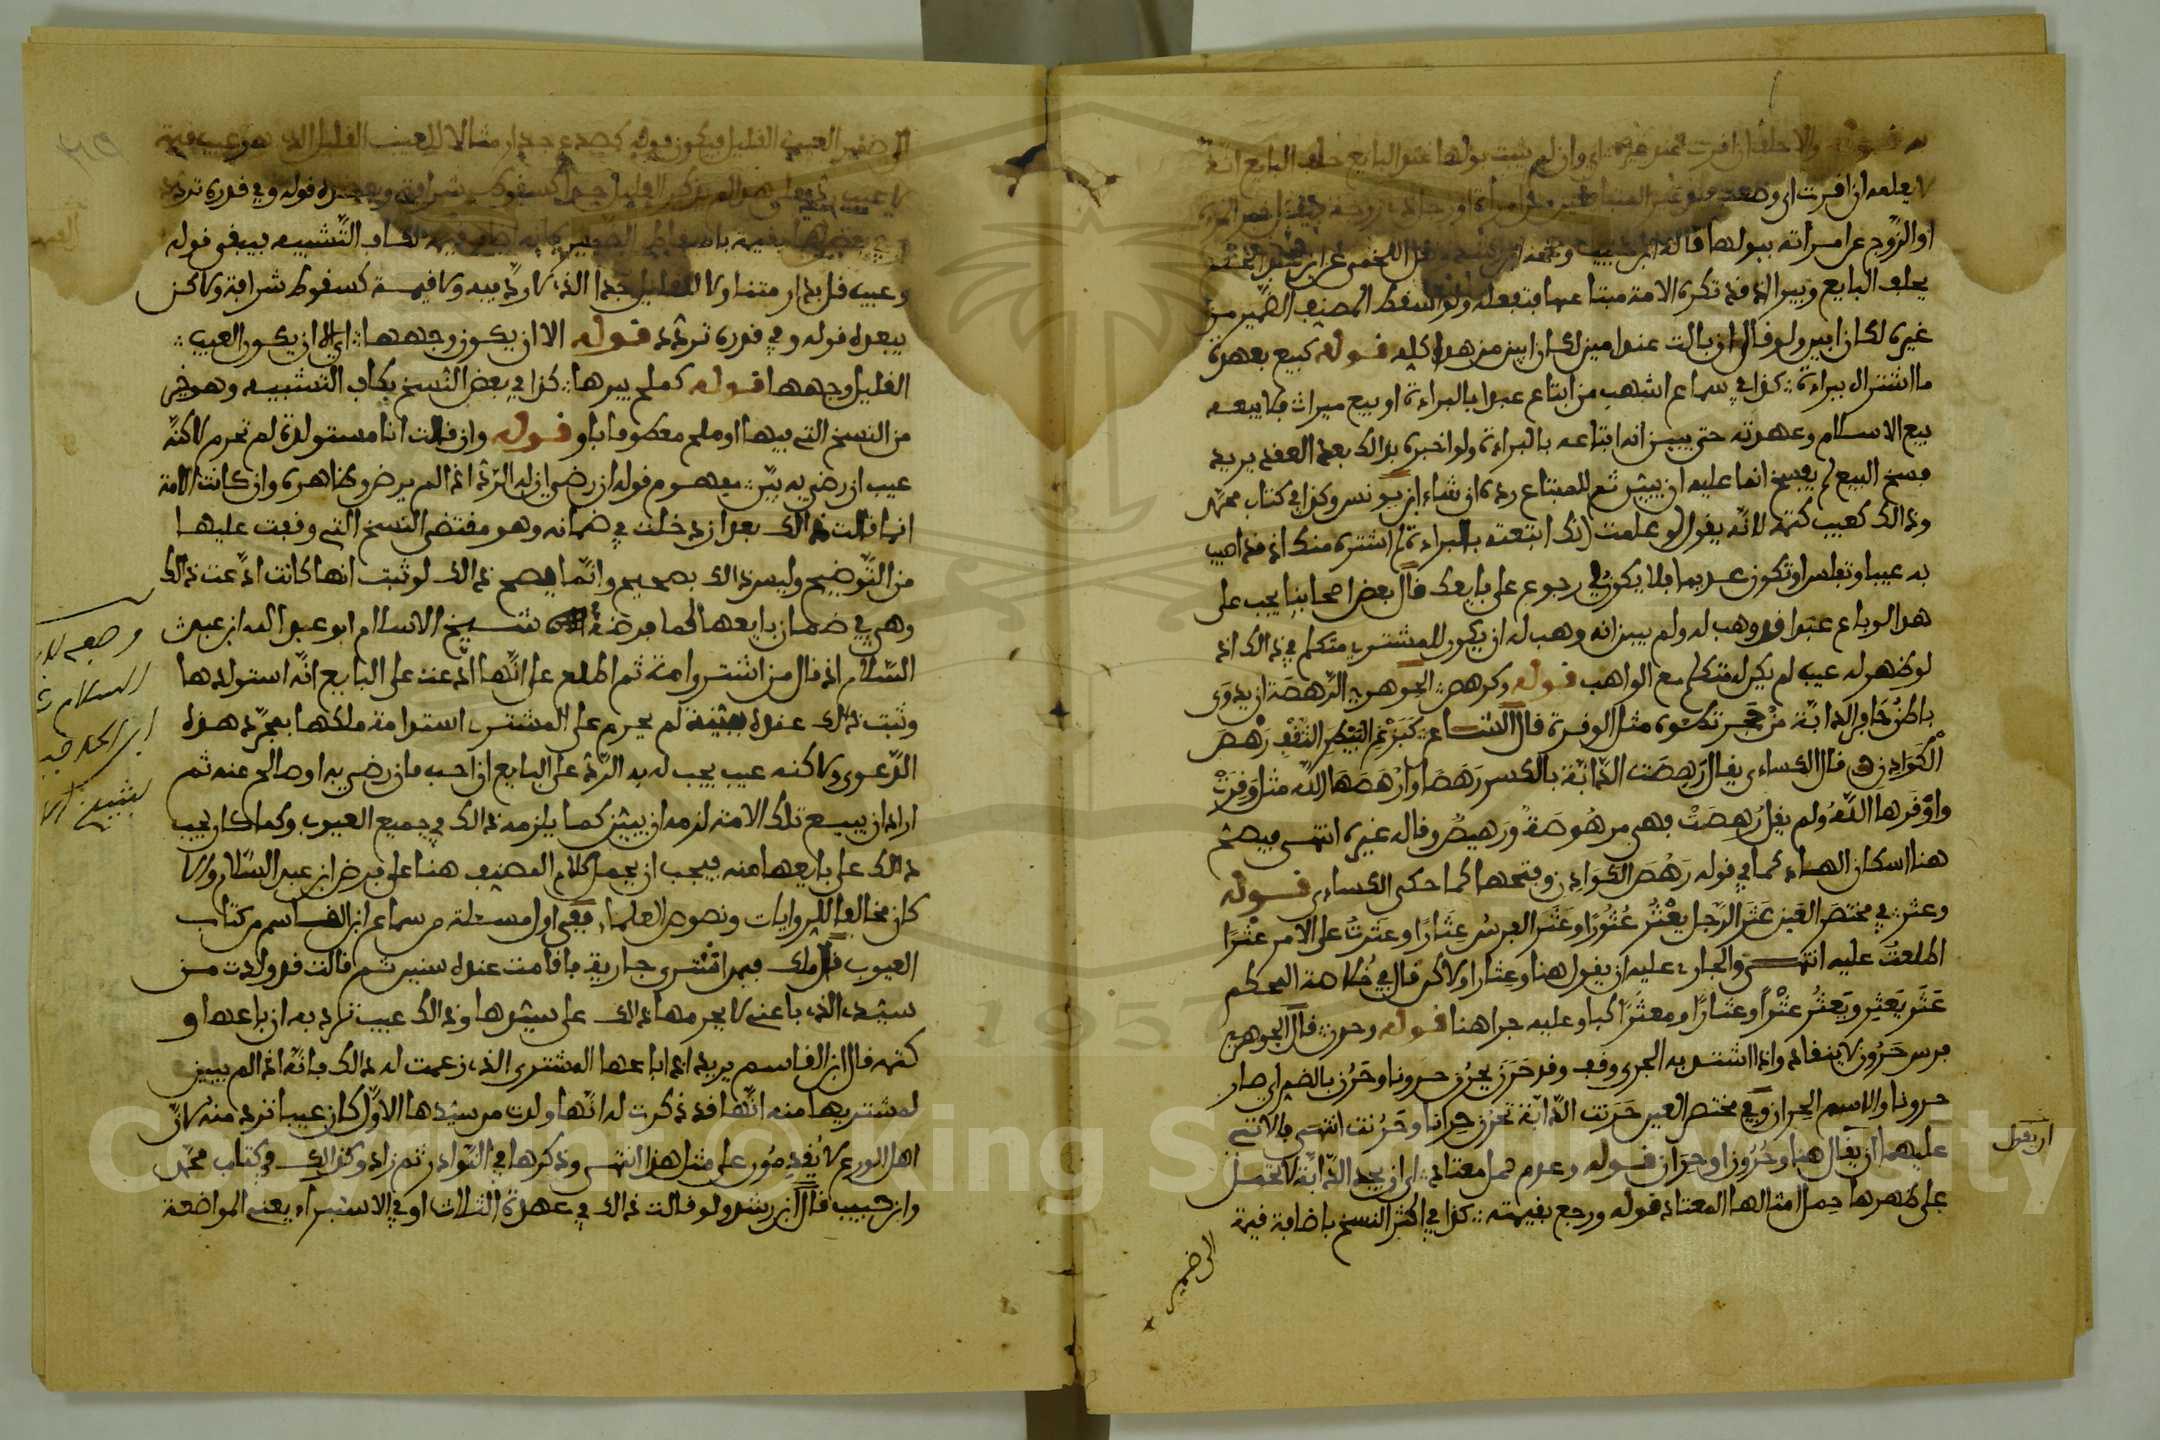 به قوله والا حلف ان اقرت عند غيره اي وان لم يثبت بولها عند البايع حلف البايع انه
لا يعلمه ان اقرت او وضعت
او الزوج عن امراته ببولها قاله ابن حبيب
يحلف البايع ويبرا اذ قد تكره الامة مبتاعها فتفعله ولو اسقط المصنف الضمير من
غيره لكان ابين ولو قال ان بالت عند امين لكان ابين من هذا كله قوله كبيع بعهدة
ما اشتراه ببراءة كذا في سماع اشهب من ابتاع عبدا بالبراءة او بيع ميراث فلا يبيعه
بيع الاسلام وعهدته حتى يبين انه ابتاعه بالبراءة ولو اخبره بذالك بعد العقد يريد
فسخ البيع لم يفسخ انما عليه ان يبين ثم للمبتاع رده ان شاء ابن يونس وكذا في كتاب محمد
وذالك كعيب كتمه لانه يقول لو علمت انك ابتعته بالبراءة لم اشتره منك اذ قد اصيب
به عيبا وتفلس او تكون عديما فلا يكون لي رجوع على بايعك قال بعض اصحابنا يجب على
هذا لو باع عبدا قد وهب له ولم يبين انه وهب له ان يكون للمشتري متكلم في ذالك اذ
لو ظهر له عيب لم يكن له متكلم مع الواهب قوله وكرهص الجوهري الرهصة ان يدوى
باطن حافر الدابة من حجر تطؤه مثل الوقرة قال الشاعر كبزغ البيطر الثقف رهص
الكوادن قال الكساءي يقال رهصت الدابة بالكسر رهصا وارهصها الله مثل وقرت
واوقرها الله ولم يقل رهصت فهي مرهوصة ورهيص وقاله غيره انتهى فيصح
هنا اسكان الهاء كما في قوله رهص الكوادن وفتحها كما حكى الكساءي قوله
وعثر في مختصر العين عثر الرجل يعثر عثورا وعثر الفرس عثارا وعثرت على الامر عثرا
اطلعت عليه انتهى والجاري عليه ان يقول هنا وعثار ولاكن قال في خلاصة المحكم
عثر يعثر ويعثر عثرا وعثارا ومعثرا كبا وعليه جرا هنا قوله وحرن قال الجوهري
فرس حرون لا ينقاد واذا اشتد به الجري وقف وقد حرن يحرن حرونا وحرن بالضم اي صار
حرونا والاسم الحران وفي مختصر العين حرنت الدابة تحرن حرانا وحرنت انتهى فالاتي
عليهما ان يقال هنا وحرون او حران قوله وعدم حمل معتاد اي ان يجد الدابة لا تحمل
على ظهرها حمل امثالها المعتاد قوله ورجع بقيمته كذا في اكثر النسخ باضافة قيمة
الى ضمير
ان يقول
الى ضمير العيب القليل فيكون قوله كصدع جدار مثالا للعيب القليل الذي هو عيب قيمة
لا عيب رد
وعيب قل بدار متناولا للقليل جدا الذي لا رد فيه ولا قيمة كسقوط شرافة ولاكن
يبعده قوله وفي قدره تردد قوله الا ان يكون وجهها اي الا ان يكون العيب
القليل وجهها قوله كملح بيرها كذا في بعض النسخ بكاف التشبيه وهو خير
من النسخ التي فيها او ملح معطوفا باو قوله وان قالت انا مستولدة لم تحرم لاكنه
عيب ان رضي به بين مفهوم قوله ان رضي ان له الرد اذا لم يرض وظاهره وان كانت الامة
انما قالت ذالك بعد ان دخلت في ضمانه وهو مقتضى النسخ التي وقفت عليها
من التوضيح وليس ذالك بصحيح وانما يصح ذالك لو ثبت انها كانت ادعت ذالك
وهي في ضمان بايعها كما فرضه شيخ الاسلام ابو عبد الله ابن عبد
السلام اذ قال من اشترى امة ثم اطلع على انها ادعت على البايع انه استولدها
وثبت ذالك عنده ببينة لم يحرم على المشتري استدامة ملكها بمجرد هذه
الدعوى ولاكنه عيب يجب له به الرد على البايع ان احب فان رضي به او صالح عنه ثم
اراد ان يبيع تلك الامة لزمه ان يبين كما يلزمه ذالك في جميع العيوب وكما كان يجب
ذالك على بايعها منه فيجب ان يحمل كلام المصنف هنا على فرض ابن عبد السلام والا
كان مخالفا للروايات ونصوص العلماء ففي اول مسئلة من سماع ابن القاسم من كتاب
العيوب قال ملك فيمن اشترى جارية فاقامت عنده سنين ثم قالت قد ولدت من
سيدي الذي باعني لا يحرمها ذالك على سيدها وذالك عيب ترد به ان باعها و
كتمه قال ابن القاسم يريد اذا باعها المشتري الذي زعمت له ذالك فانه اذا لم يبين
لمشتريها منه انها قد ذكرت له انها ولدت من سيدها الاول كان عيبا ترد منه لان
اهل الورع لا يقدمون على مثل هذا انتهى وذكرها في النوادر ثم زاد وكذالك في كتاب محمد
وابن حبيب قال ابن رشد ولو قالت ذالك في عهدة الثلاث او في الاستبراء يعني المواضعة